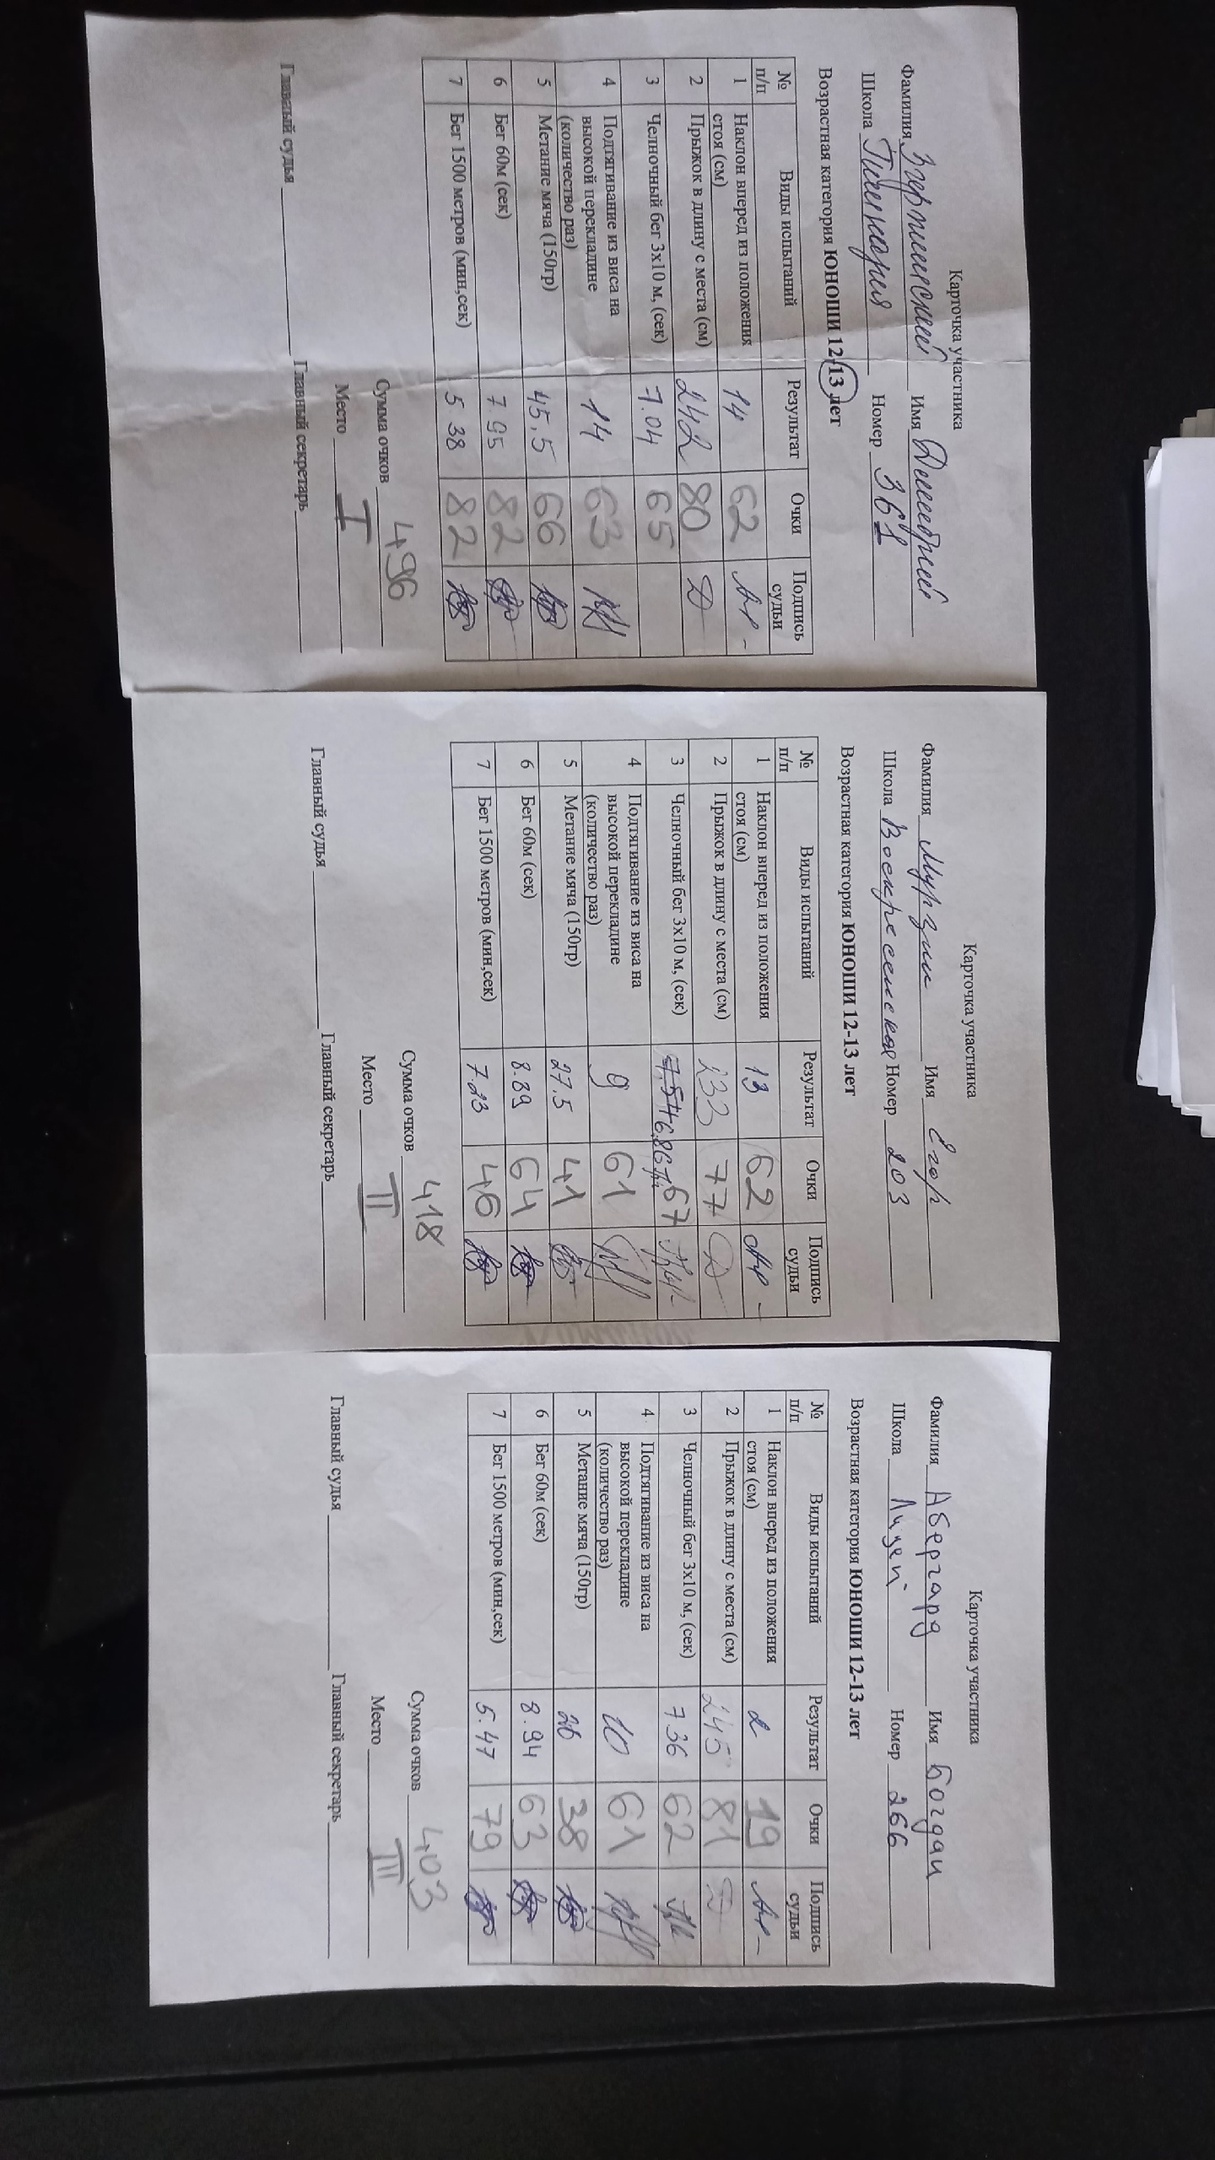 Карточка участника
Фамилия Згержинский Имя Дмитрий
Школа Гимназия Номер 361
Возрастная категория ЮНОШИ 12-13 лет
№ п/п Виды испытаний Результат Очки Подпись судьи
1 Наклон вперед из положения стоя (см) 14 62
2 Прыжок в длину с места (см) 242 80
3 Челночный бег 3х10 м, (сек) 7.04 65
4 Подтягивание из виса на высокой перекладине (количество раз) 14 63
5 Метание мяча (150гр) 45,5 66
6 Бег 60м (сек) 7.95 82
7 Бег 1500 метров (мин,сек) 5 38 82
Сумма очков 496
Место I
Главный судья Главный секретарь
Карточка участника
Фамилия Мурзин Имя Егор
Школа Воскресенская Номер 203
Возрастная категория ЮНОШИ 12-13 лет
№ п/п Виды испытаний Результат Очки Подпись судьи
1 Наклон вперед из положения стоя (см) 13 62
2 Прыжок в длину с места (см) 233 77
3 Челночный бег 3х10 м, (сек) 7,54 6.86 67
4 Подтягивание из виса на высокой перекладине (количество раз) 9 61
5 Метание мяча (150гр) 27.5 41
6 Бег 60м (сек) 8.89 64
7 Бег 1500 метров (мин,сек) 7.23 46
Сумма очков 418
Место II
Главный судья Главный секретарь
Карточка участника
Фамилия Абергард Имя Богдан
Школа Лицей Номер 266
Возрастная категория ЮНОШИ 12-13 лет
№ п/п Виды испытаний Результат Очки Подпись судьи
1 Наклон вперед из положения стоя (см) 2 19
2 Прыжок в длину с места (см) 245 81
3 Челночный бег 3х10 м, (сек) 7 36 62
4 Подтягивание из виса на высокой перекладине (количество раз) 10 61
5 Метание мяча (150гр) 26 38
6 Бег 60м (сек) 8.94 63
7 Бег 1500 метров (мин,сек) 5.47 79
Сумма очков 403
Место III
Главный судья Главный секретарь